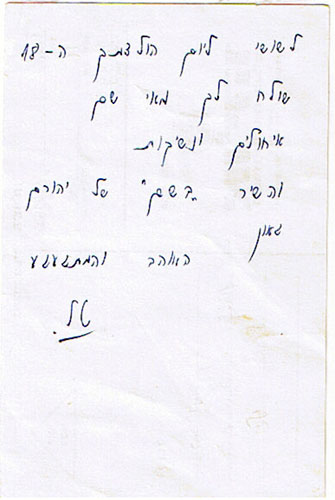 לשושי ליום הולדתך ה-18
שולח לך מאי שם
איחולים ונשיקות
והשיר "גשם" של יהורם
גאון
האוהב והמתגעגע
טל.